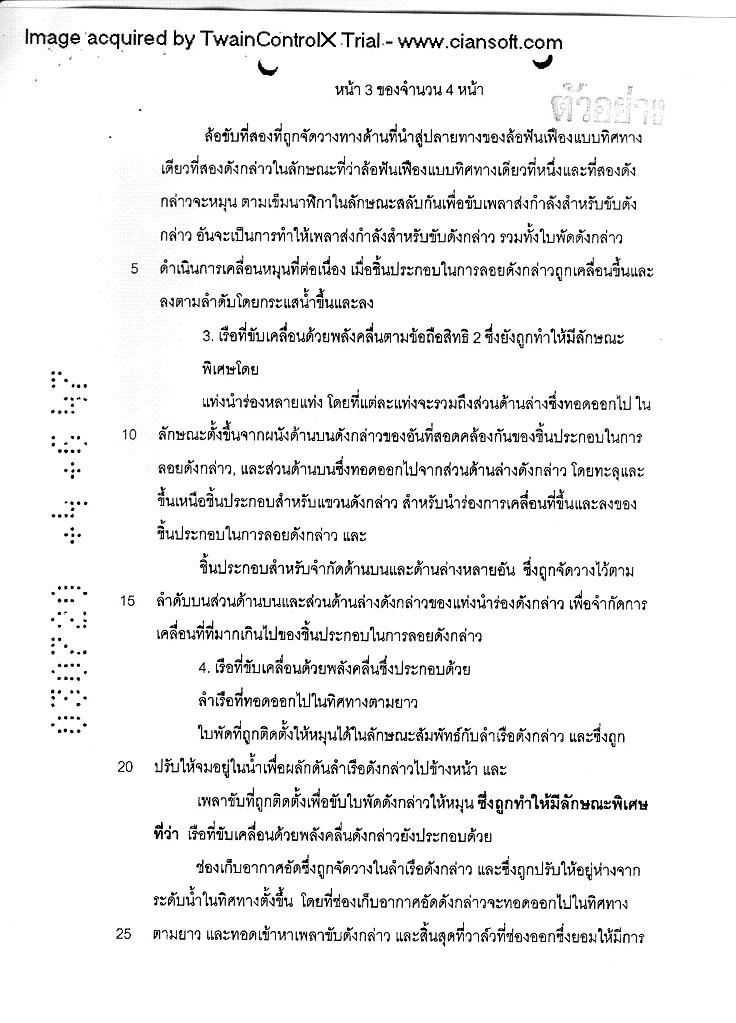 Image acquired by TwainControlX Trial - www.ciansoft.com
หน้า 3 ของจำนวน 4 หน้า
ตัวอย่าง
ล้อขับที่สองที่ถูกจัดวางทางด้านที่นำสู่ปลายทางของล้อฟันเฟืองแบบทิศทาง
เดียวที่สองดังกล่าวในลักษณะที่ว่าล้อฟันเฟืองแบบทิศทางเดียวที่หนึ่งและที่สองดัง
กล่าวจะหมุน ตามเข็มนาฬิกาในลักษณะสลับกันเพื่อขับเพลาส่งกำลังสำหรับขับดัง
กล่าว อันจะเป็นการทำให้เพลาส่งกำลังสำหรับขับดังกล่าว รวมทั้งใบพัดดังกล่าว
5 ดำเนินการเคลื่อนหมุนที่ต่อเนื่อง เมื่อชิ้นประกอบในการลอยดังกล่าวถูกเคลื่อนขึ้นและ
ลงตามลำดับโดยกระแสน้ำขึ้นและลง
3. เรือที่ขับเคลื่อนด้วยพลังคลื่นตามข้อถือสิทธิ 2 ซึ่งยังถูกทำให้มีลักษณะ
พิเศษโดย
แท่งนำร่องหลายแท่ง โดยที่แต่ละแท่งจะรวมถึงส่วนด้านล่างซึ่งทอดออกไป ใน
10 ลักษณะตั้งขึ้นจากผนังด้านบนดังกล่าวของอันที่สอดคล้องกันของชิ้นประกอบในการ
ลอยดังกล่าว, และส่วนด้านบนซึ่งทอดออกไปจากส่วนด้านล่างดังกล่าว โดยทะลุและ
ขึ้นเหนือชิ้นประกอบสำหรับแขวนดังกล่าว สำหรับนำร่องการเคลื่อนที่ขึ้นและลงของ
ชิ้นประกอบในการลอยดังกล่าว และ
ชิ้นประกอบสำหรับจำกัดด้านบนและด้านล่างหลายอัน ซึ่งถูกจัดวางไว้ตาม
15 ลำดับบนส่วนด้านบนและส่วนด้านล่างดังกล่าวของแท่งนำร่องดังกล่าว เพื่อจำกัดการ
เคลื่อนที่ที่มากเกินไปของชิ้นประกอบในการลอยดังกล่าว
4. เรือที่ขับเคลื่อนด้วยพลังคลื่นซึ่งประกอบด้วย
ลำเรือที่ทอดออกไปในทิศทางตามยาว
ใบพัดที่ถูกติดตั้งให้หมุนได้ในลักษณะสัมพัทธ์กับลำเรือดังกล่าว และซึ่งถูก
20 ปรับให้จมอยู่ในน้ำเพื่อผลักดันลำเรือดังกล่าวไปข้างหน้า และ
เพลาขับที่ถูกติดตั้งเพื่อขับใบพัดดังกล่าวให้หมุน ซึ่งถูกทำให้มีลักษณะพิเศษ
ที่ว่า เรือที่ขับเคลื่อนด้วยพลังคลื่นดังกล่าวยังประกอบด้วย
ช่องเก็บอากาศอัดซึ่งถูกจัดวางในลำเรือดังกล่าว และซึ่งถูกปรับให้อยู่ห่างจาก
ระดับน้ำในทิศทางตั้งขึ้น โดยที่ช่องเก็บอากาศอัดดังกล่าวจะทอดออกไปในทิศทาง
25 ตามยาว และทอดเข้าหาเพลาขับดังกล่าว และสิ้นสุดที่วาล์วที่ช่องออกซึ่งยอมให้มีการ